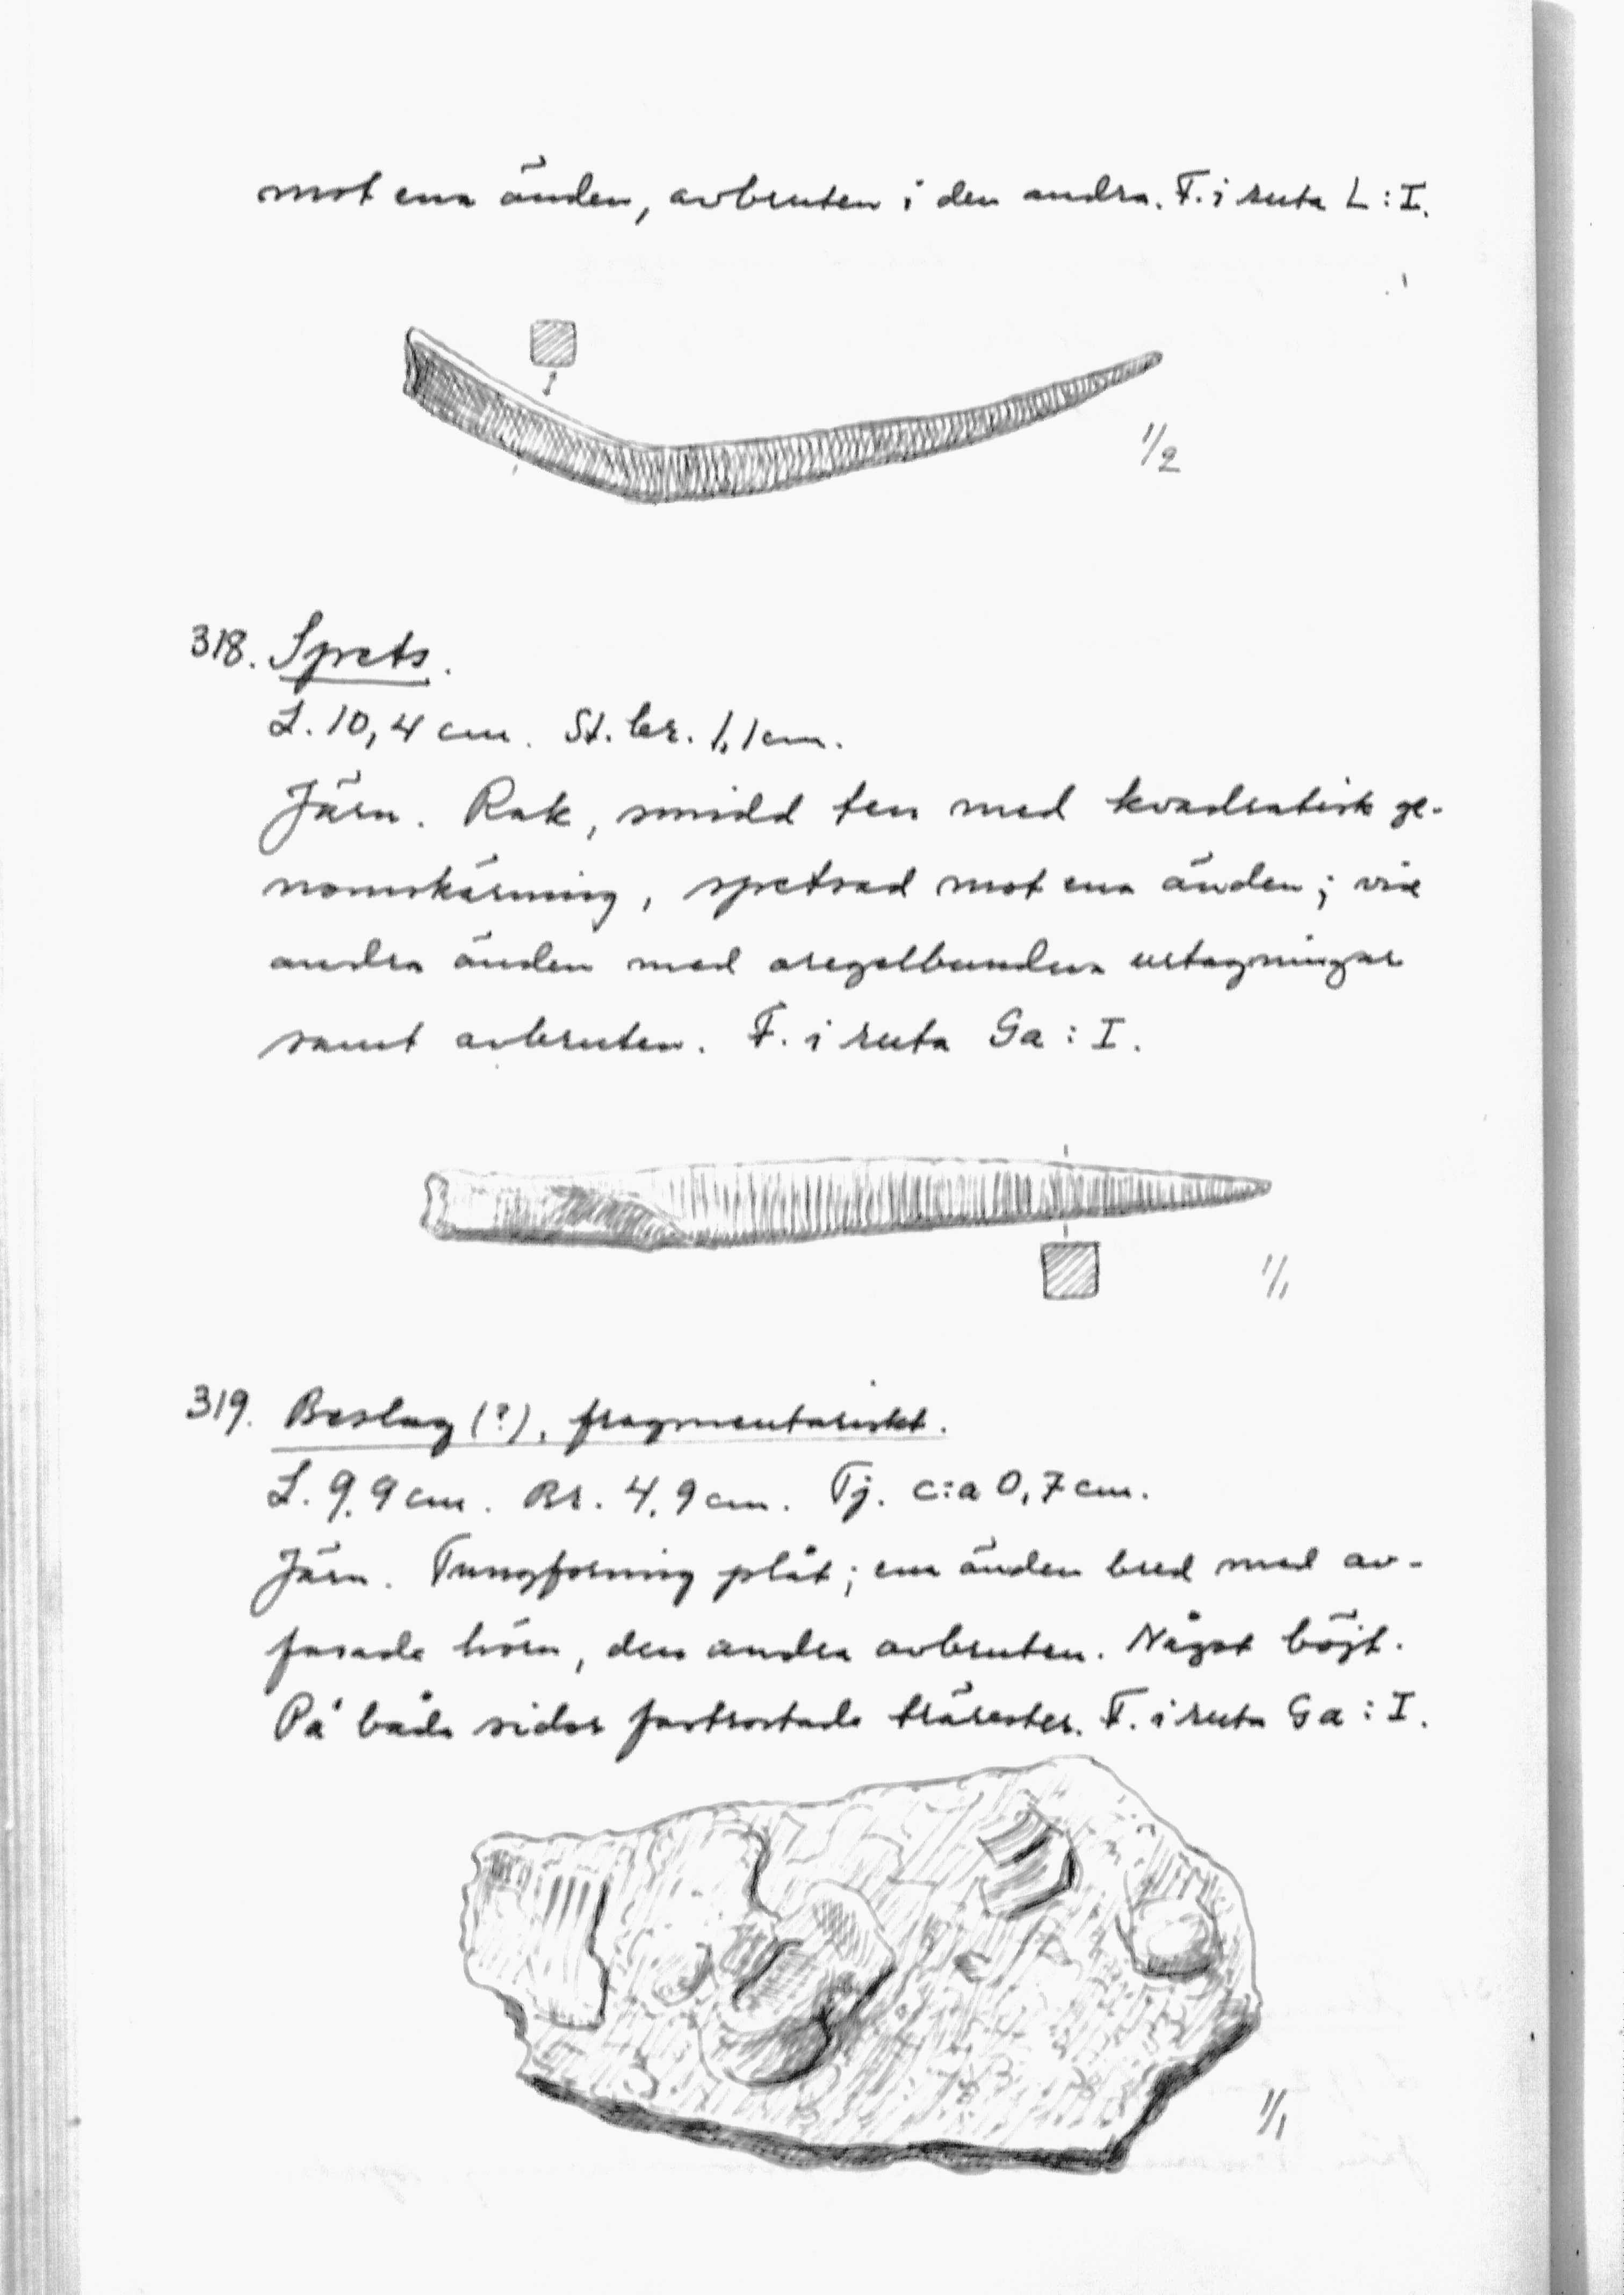 mot ena änden, avbruten i den andra. F. i ruta L : I.
1/2
318. Spets.
L. 10,4 cm. St. br. 1,1 cm.
Järn. Rak, smidd ten med kvadratisk ge-
nomskärning, spetsad mot ena änden; vid
andra änden med oregelbundna urtagningar
samt avbruten. F. i ruta Ga : I.
1/1
319. Beslag (?), fragmentariskt.
L. 9,9 cm. Br. 4,9 cm. Tj. c:a 0,7 cm.
Järn. Tungformig plåt; ena änden bred med av-
fasade hörn, den andra avbruten. Något böjt.
På båda sidor fastrostade trärester. F. i ruta Ga : I.
1/1